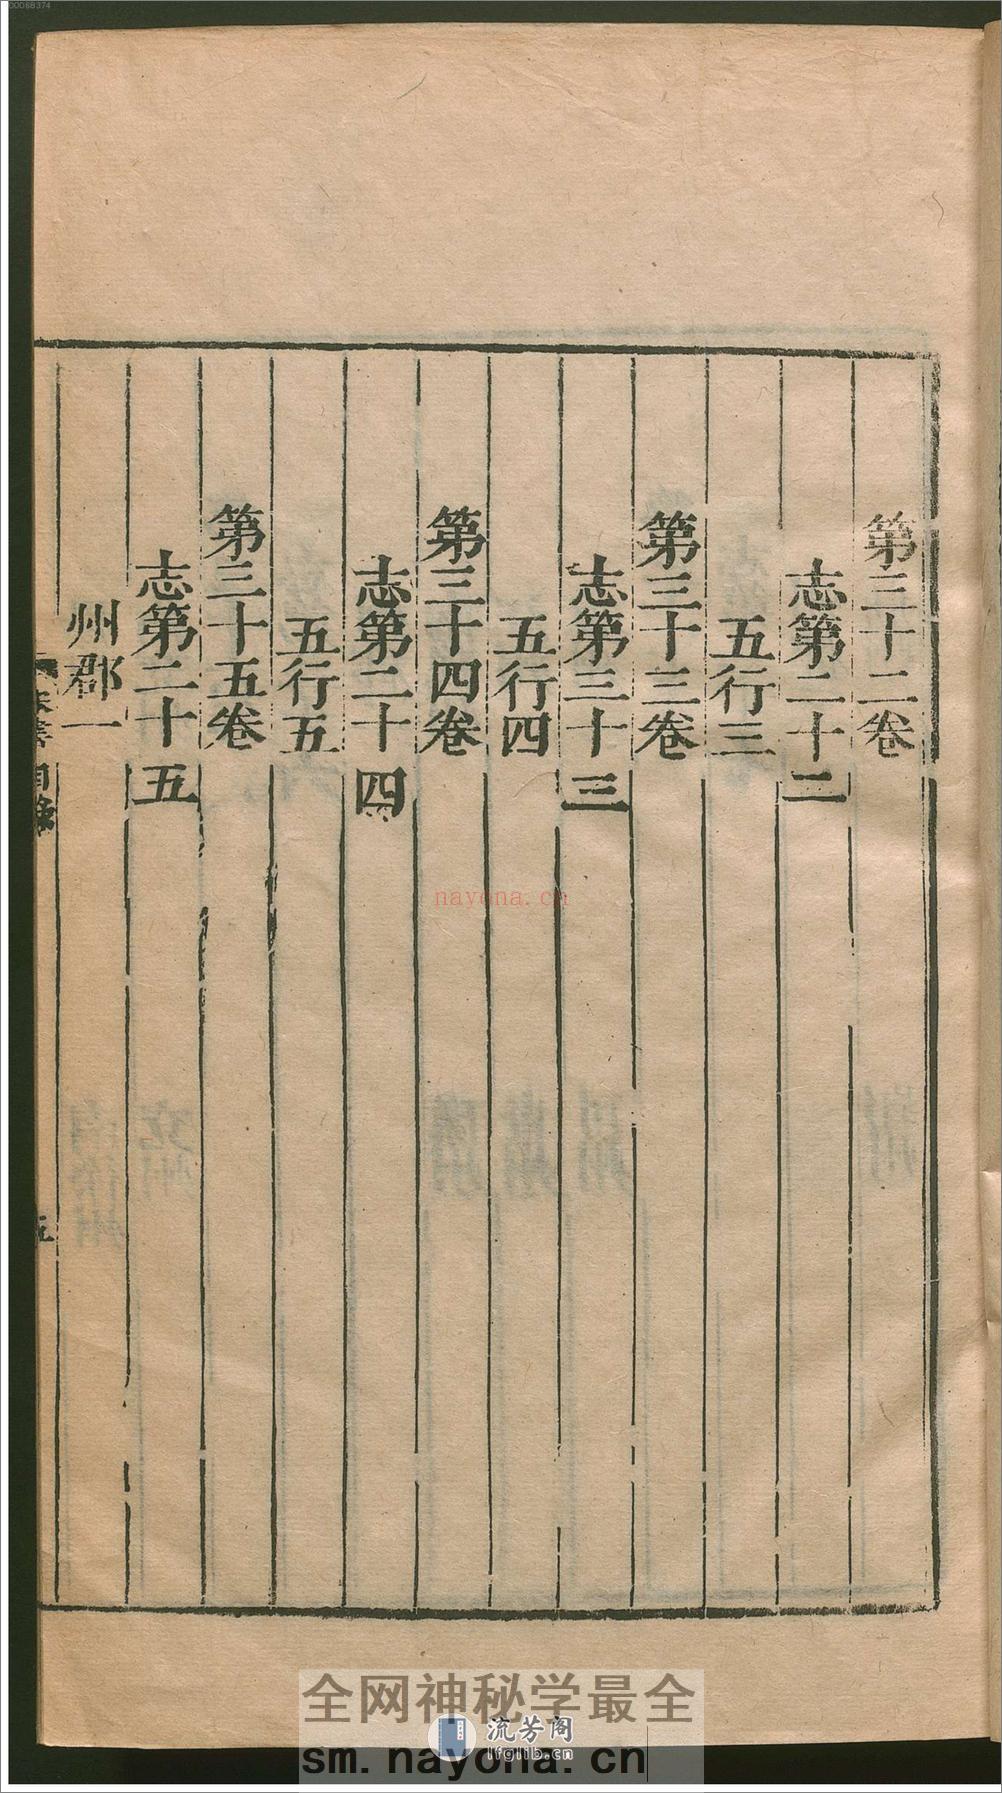 00068374
第三十二卷
志第二十二
五行三
第三十三卷
志第三十三
五行四
第三十四卷
志第二十四
五行五
第三十五卷
志第二十五
州郡一
目錄
五
nayona.cn
全网神秘学最全
流芳阁
lfglib.cn
sm.nayona.cn